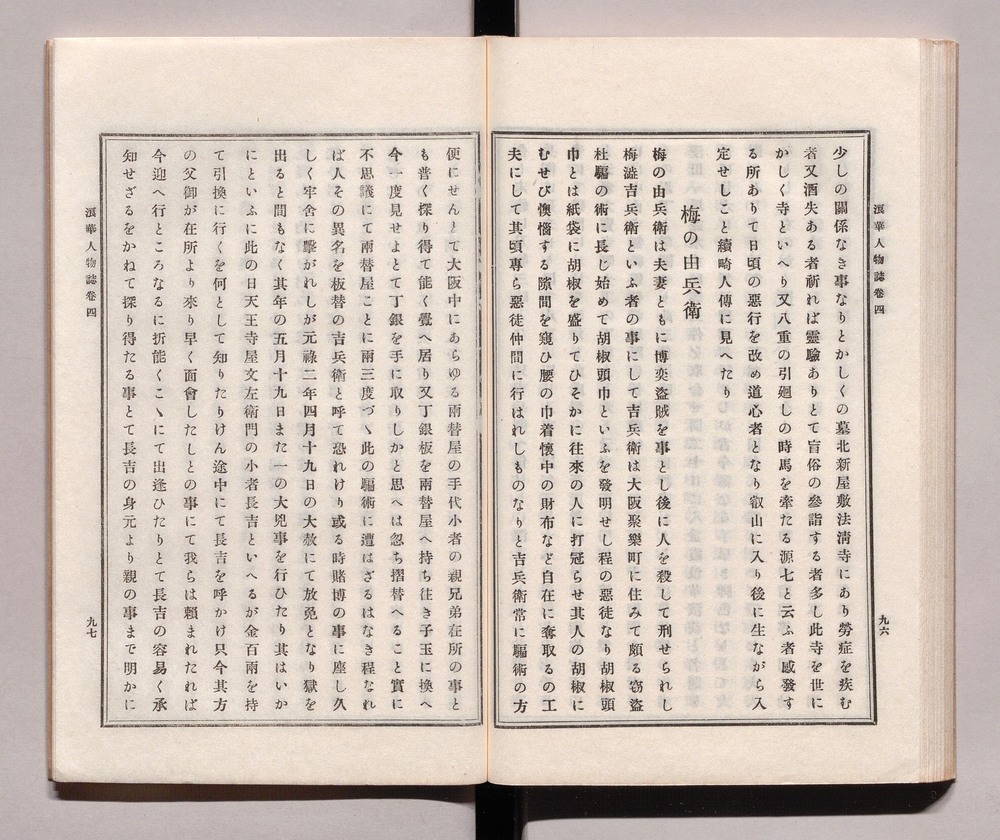 浪華人物誌卷四
九六
少しの關係なき事なりとかしくの墓北新屋敷法淸寺にあり勞症を疾む
者又酒失ある者祈れば靈驗ありとて盲俗の參詣する者多し此寺を世に
かしく寺といへり又八重の引廻しの時馬を牽たる源七と云ふ者感發す
る所ありて日頃の惡行を改め道心者となり叡山に入り後に生ながら入
定せしこと續畸人傳に見へたり
梅の由兵衛
梅の由兵衛は夫妻ともに博奕盜賊を事とし後に人を殺して刑せられし
梅澁吉兵衛といふ者の事にして吉兵衛は大阪聚樂町に住みて頗る窃盜
杜騙の術に長じ始めて胡椒頭巾といふを發明せし程の惡徒なり胡椒頭
巾とは紙袋に胡椒を盛りてひそかに往來の人に打冠らせ其人の胡椒に
むせび懊惱する隙間を窺ひ腰の巾着懷中の財布など自在に奪取るの工
夫にして其頃專ら惡徒仲間に行はれしものなりと吉兵衛常に騙術の方
便にせんとて大阪中にあらゆる兩替屋の手代小者の親兄弟在所の事と
も普く探り得て能く覺へ居り又丁銀板を兩替屋へ持ち往き子玉に換へ
今一度見せよとて丁銀を手に取りしかと思へは忽ち摺替へること實に
不思議にて兩替屋ことに兩三度づヽ此の騙術に遭はざるはなき程なれ
ば人その異名を板替の吉兵衛と呼て恐れけり或る時賭博の事に座し久
しく牢舍に繫がれしが元祿二年四月十九日の大赦にて放免となり獄を
出ると間もなく其年の五月十九日また一の大兇事を行ひたり其はいか
にといふに此の日天王寺屋文左衛門の小者長吉といへるが金百兩を持
て引換に行くを何として知りたりけん途中にて長吉を呼かけ只今其方
の父御が在所より來り早く面會したしとの事にて我らは賴まれたれば
今迎へ行ところなるに折能くこヽにて出逢ひたりとて長吉の容易く承
知せざるをかねて探り得たる事とて長吉の身元より親の事まで明かに
浪華人物誌卷四
九七